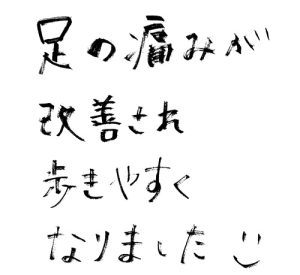 足の痛みが
改善され
歩きやすく
なりました